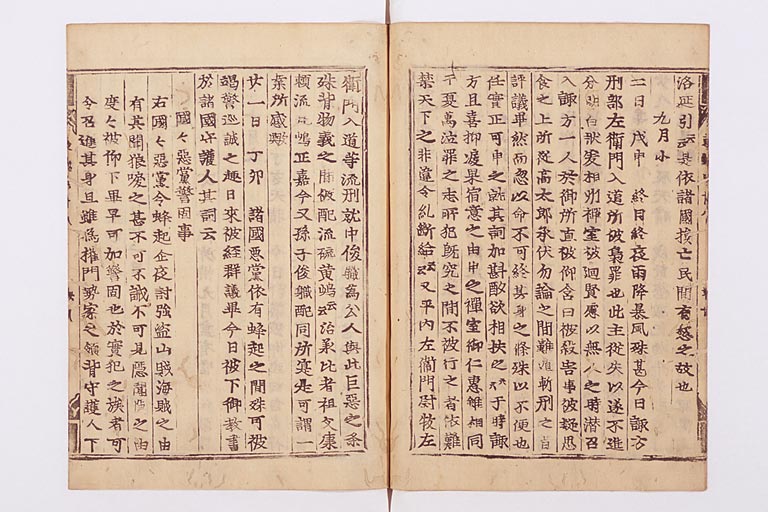 洛延引云云是依諸國損亡民間有愁之故也
九月小
二日 戊申 終日終夜雨降暴風殊甚今日諏方
刑部左衛門入道所被梟罪也此主從共以遂不進
分明白狀爰相州禪室被廻賢慮以無人之時潜召
入諏方一人於御所直被仰含曰被殺害事彼疑思
食之上所從高太郎承伏勿論之間難遁斬刑之旨
評議畢然而忽以命不可終其身之條殊以不便也
任實正可申之就其詞加斟酌欲相扶之云云于時諏
方且喜抑涙果宿意之由申之禪室御仁惠雖相同
于夏禹泣罪之志所犯既究之間不被行之者依難
禁天下之非違令糺斷給云云又平内左衛門尉牧左
衛門入道等流刑就中俊職爲公人與此巨惡之条
殊背物義之間被配流硫黄嶋云云治承比者祖父康
頼流此嶋正嘉今又孫子俊職配同所寔是可謂一
業所感歟
廿一日 丁卯 諸國惡黨依有蜂起之間殊可被
竭警巡誠之趣日來被經群議畢今日被下御教書
於諸國守護人其詞云
國々惡黨警固事
右國々惡黨令蜂起企夜討強盗山賊海賊之由
有其聞狼唳之甚不可不誡不可見隱聞隱之由
度々被仰下畢早可加警固也於實犯之族者可
令召進其身且雖爲權門勢家之領背守護人下